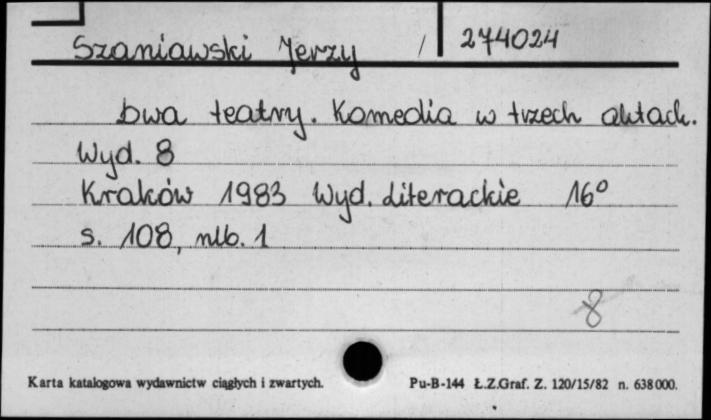 Szaniawski Jerzy / 274024
Dwa teatry. Komedia w trzech aktach.
Wyd. 8
Kraków 1983 Wyd. Literackie 16°
s. 108, nlb. 1
8
Karta katalogowa wydawnictw ciągłych i zwartych. Pu-B-144 Ł.Z.Graf. Z. 120/15/82 n. 638000.